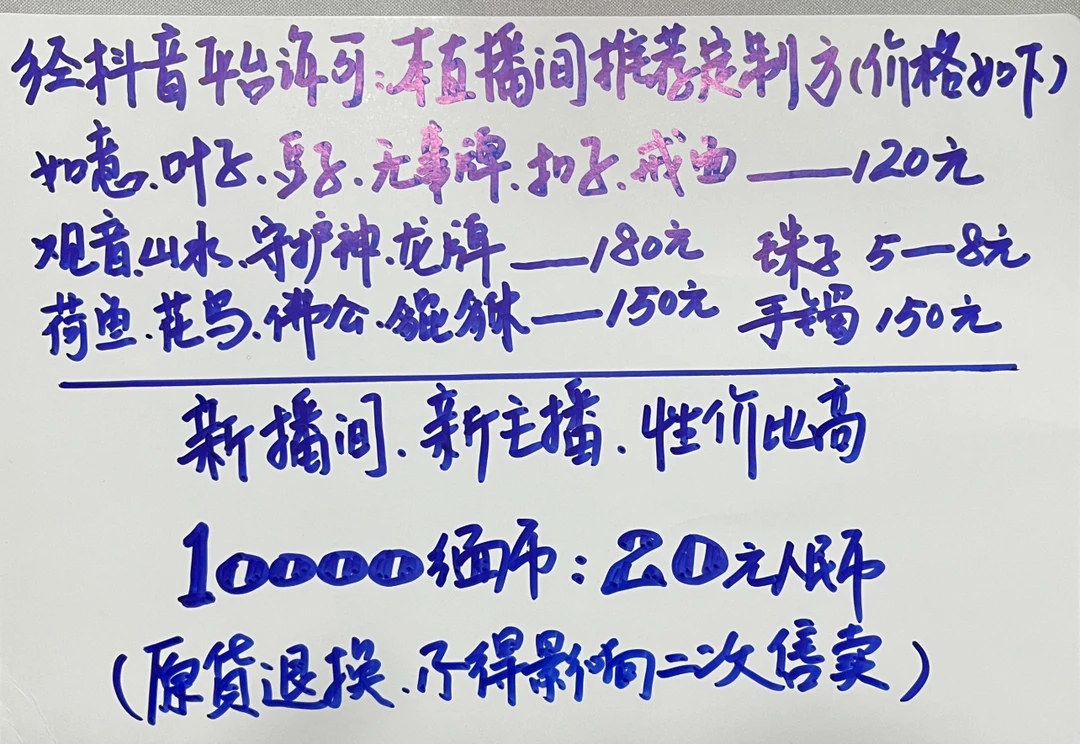 经抖音平台许可:本直播间推荐定制方(价格如下)
如意、叶子、豆子、无事牌、扣子、戒面——120元
观音、山水、守护神、龙牌——180元 珠子 5—8元
荷鱼、花鸟、佛公、貔貅——150元 手镯 150元
新播间、新主播、性价比高
10000缅币:20元人民币
(原货退换、不得影响二次售卖)